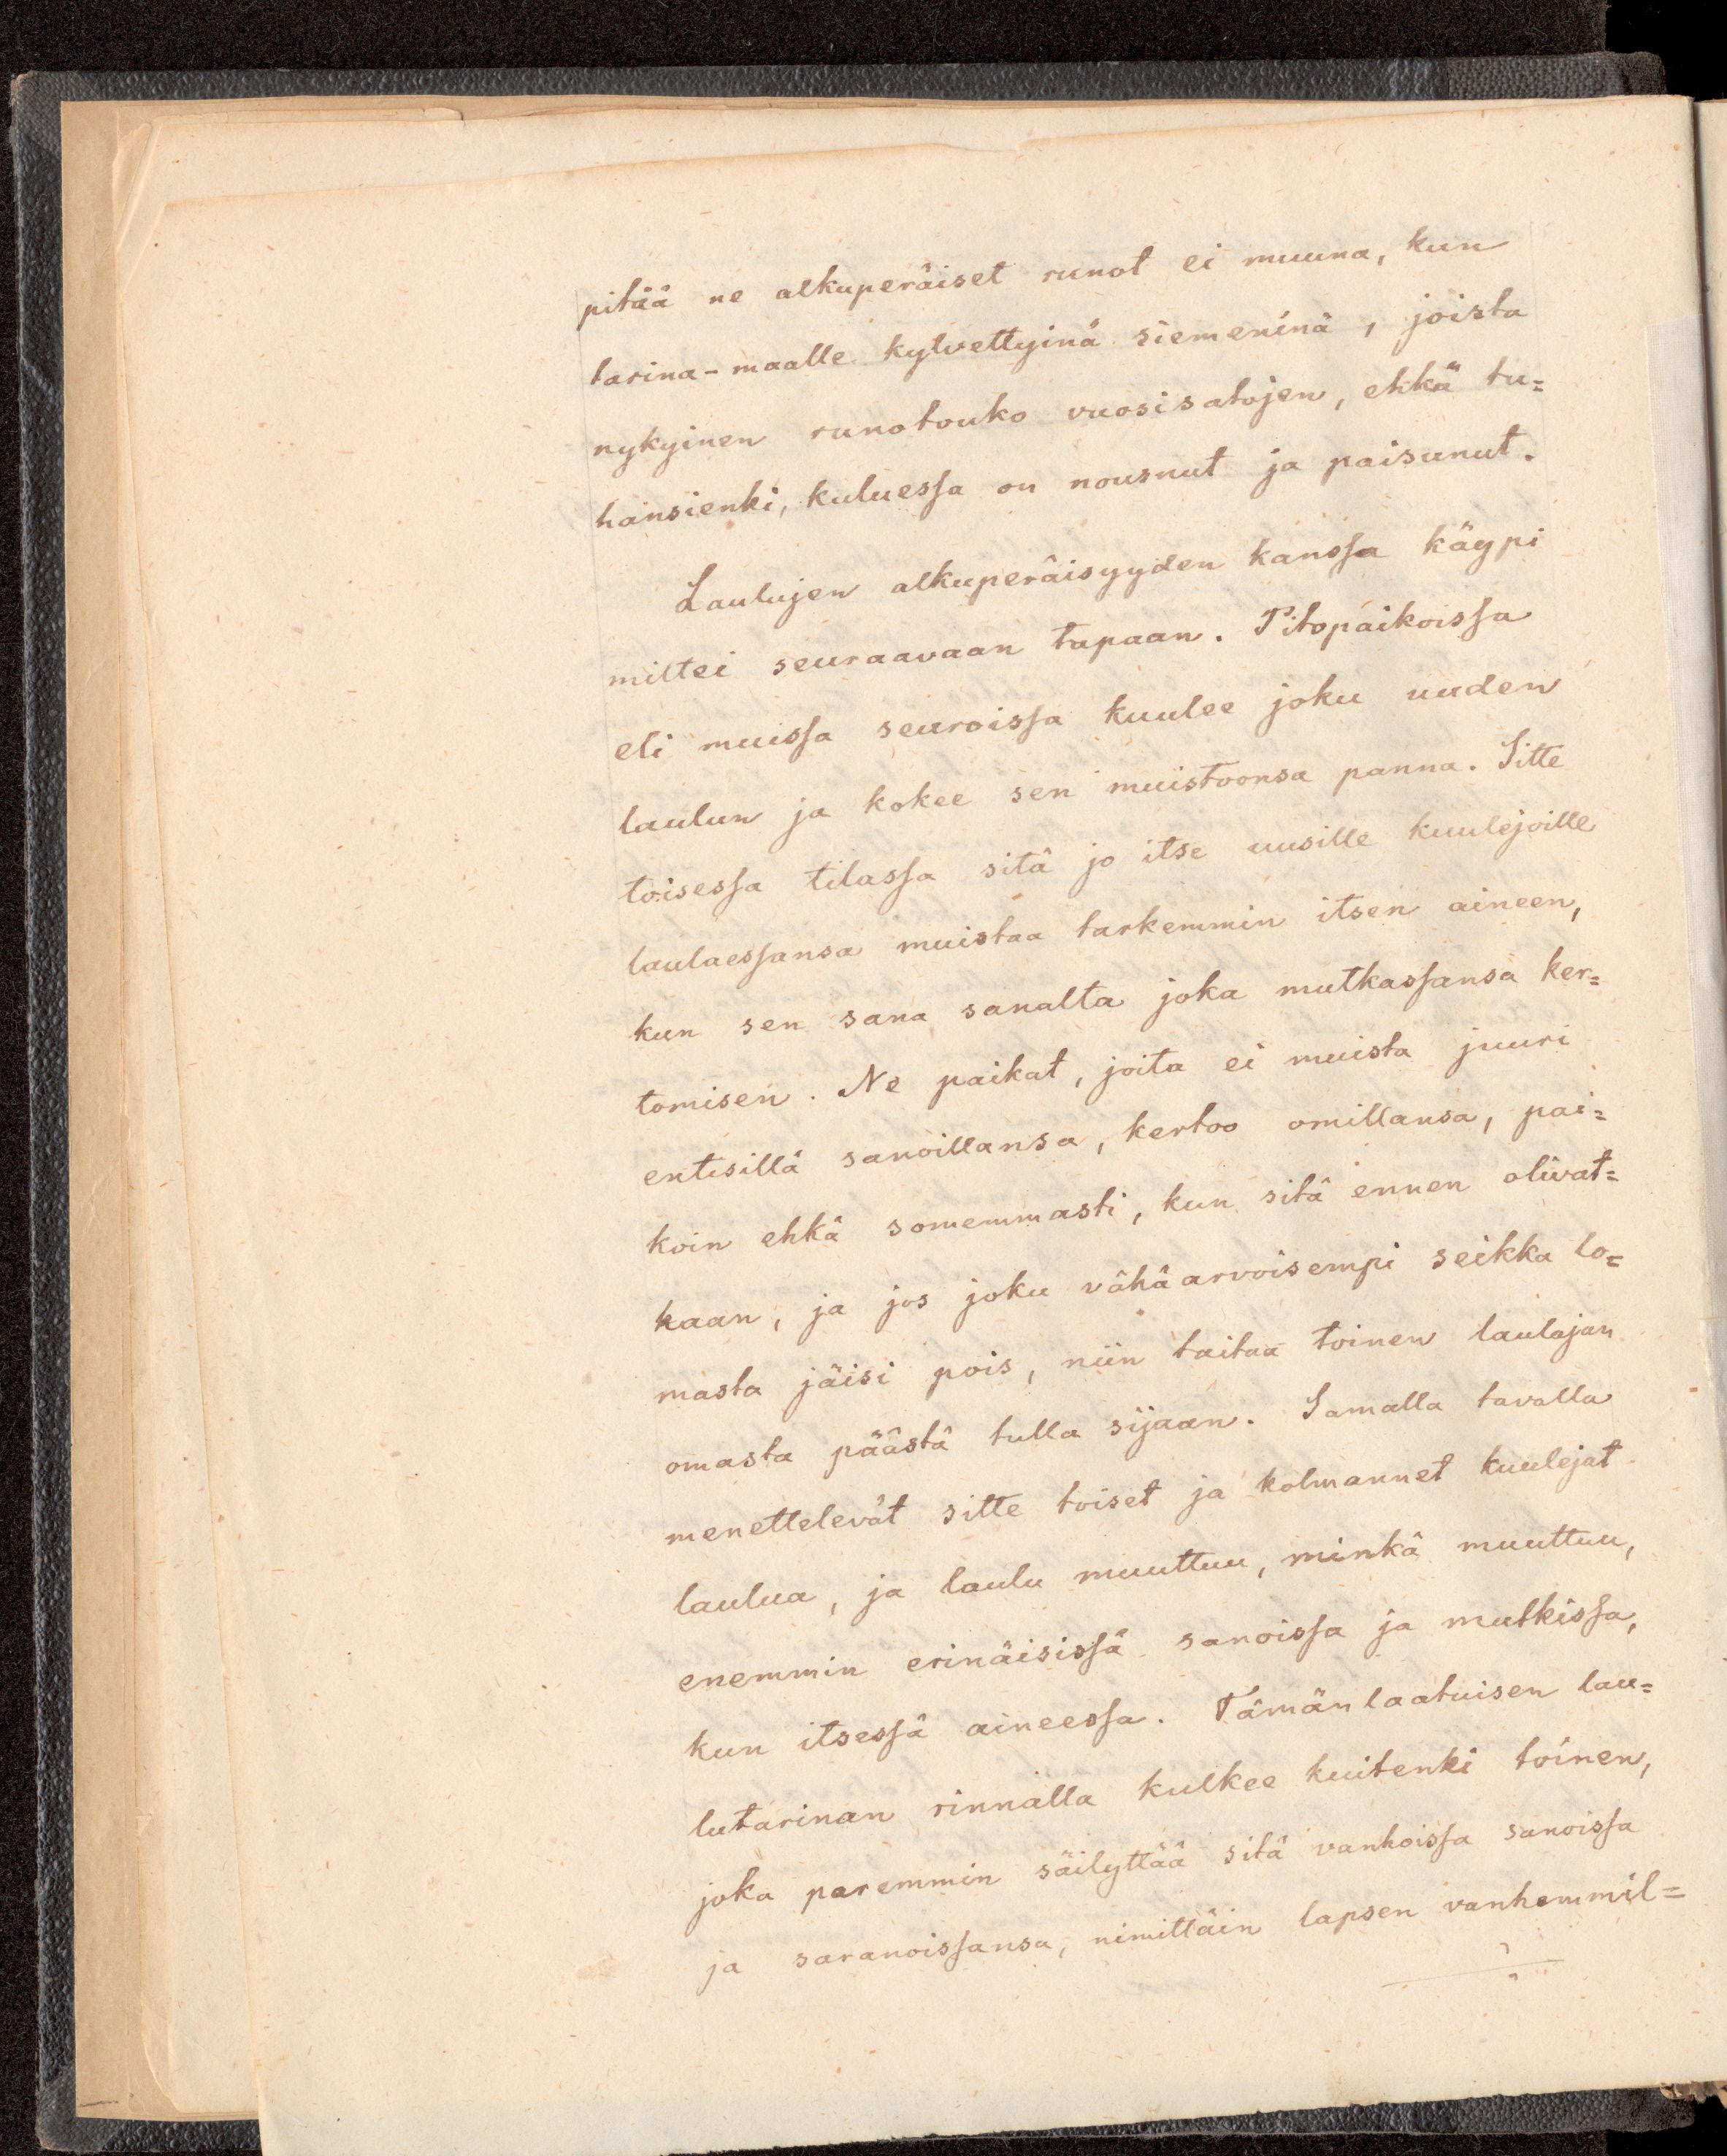 pitää ne alkuperäiset runot ei muuna, kun
tarina-maalle kylvettyinä siemeninä, joista
nykyinen runotouko vuosisatojen, ehkä tu=
hansienki, kuluessa on nousnut ja paisunut.
Laulujen alkuperäisyyden kanssa käypi
miltei seuraavaan tapaan. Pitopaikoissa
eli muissa seuroissa kuulee joku uuden
laulun ja kokee sen muistoonsa panna. Sitte
toisessa tilassa sitä jo itse uusille kuulejoille
laulaessansa muistaa tarkemmin itsen aineen,
kun sen sana sanalta joka mutkassansa ker=
tomisen. Ne paikat, joita ei muista juuri
entisillä sanoillansa, kertoo omillansa, pai=
koin ehkä somemmasti, kun sitä ennen olivat=
kaan, ja jos joku vähäarvoisempi seikka lo=
masta jäisi pois, niin taitaa toinen laulajan
omasta päästä tulla sijaan. Samalla tavalla
menettelevät sitte toiset ja kolmannet kuulejat
laulua, ja laulu muuttuu, minkä muuttuu,
enemmin erinäisissä sanoissa ja mutkissa,
kun itsessä aineessa. Tämän laatuisen lau=
lutarinan rinnalla kulkee kuitenki toinen,
joka paremmin säilyttää sitä vanhoissa sanoissa
ja saranoissansa, nimittäin lapsen vanhemmil=